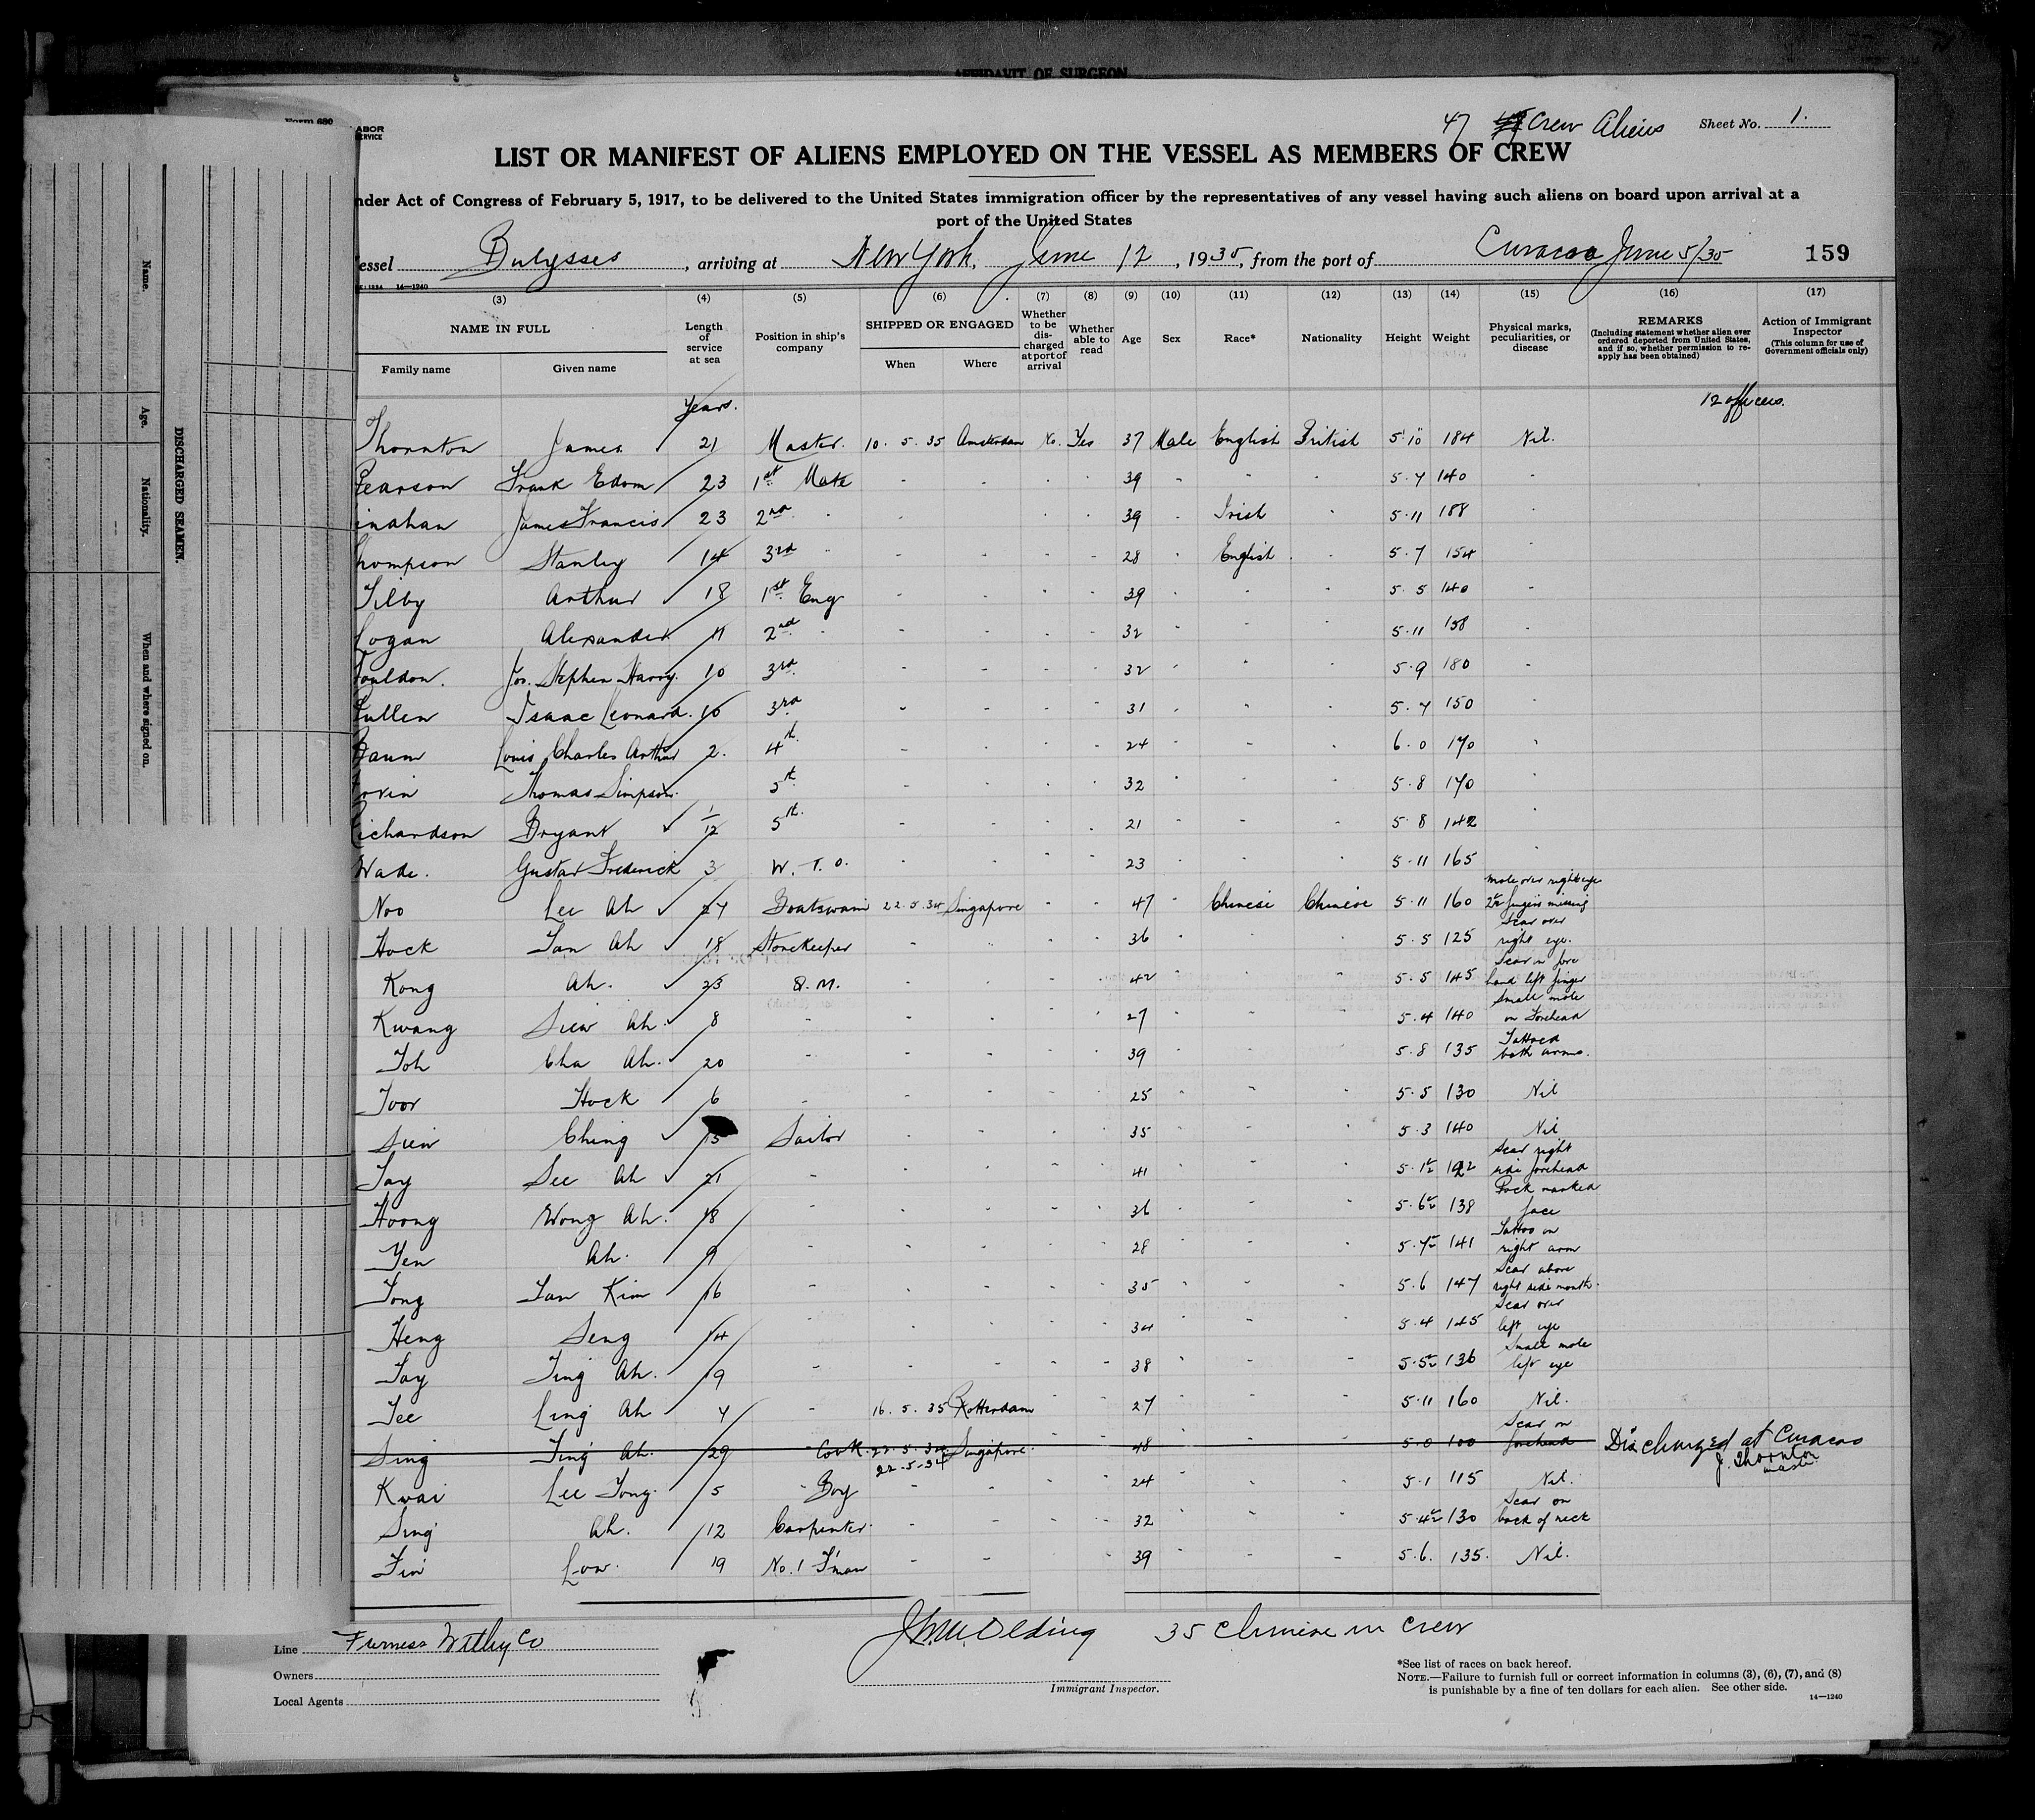 AFFIDAVIT OF SURGEON
Form 680
ABOR
ERVICE
47 Crew Aliens Sheet No. 1.
LIST OR MANIFEST OF ALIENS EMPLOYED ON THE VESSEL AS MEMBERS OF CREW
nder Act of Congress of February 5, 1917, to be delivered to the United States immigration officer by the representatives of any vessel having such aliens on board upon arrival at a
port of the United States
essel Bulysses, arriving at New York, June 12, 1935, from the port of Curacao June 5/35 159
14—1240
(3) (4) (5) (6) (7) (8) (9) (10) (11) (12) (13) (14) (15) (16) (17)
NAME IN FULL
Family name
Given name
Length of service at sea
Position in ship's company
SHIPPED OR ENGAGED
When
Where
Whether to be discharged at port of arrival
Whether able to read
Age
Sex
Race*
Nationality
Height
Weight
Physical marks, peculiarities, or disease
REMARKS
(Including statement whether alien ever ordered deported from United States, and if so, whether permission to reapply has been obtained)
Action of Immigrant Inspector
(This column for use of Government officials only)
Years.
12 officers.
Thornton James 21 Master. 10. 5. 35 Amsterdam No. Yes 37 Male English British 5'10 184 Nil.
Pearson Frank Edom 23 1st Mate - - - - 39 - - - 5.7 140 -
inahan James Francis 23 2nd " - - - - 39 - Irish - 5.11 188 -
hompson Stanley 14 3rd " - - - - 28 - English - 5.7 154 -
Tilby Arthur 18 1st Eng - - - - 39 - - - 5.5 140 -
Logan Alexander 11 2nd - - - - - 32 - - - 5.11 158 -
ouldon. Jos. Stephen Harry. 10 3rd - - - - 32 - - - 5.9 180 -
ullen Isaac Leonard. 10 3rd - - - - 31 - - - 5.7 150 -
Baum Louis Charles Arthur 2. 4th - - - - 24 - - - 6.0 170 -
rvin Thomas Simpson. 5th - - - - 32 - - - 5.8 170 -
ichardson Bryant 1/12 5th. - - - - 21 - - - 5.8 142 -
Wade. Gustav Frederick 3 W. T. O. - - - - 23 - - - 5.11 165 -
Noo Lee Ah 27 Boatswain 22.5.34 Singapore - - 47 - Chinese Chinese 5.11 160 mole over right eye fingers missing
Hock Tan Ah 18 Storekeeper - - - - 36 - - - 5.5 125 Scar over right eye.
Kong Ah. 23 Q.M. - - - - 42 - - - 5.5 145 Scar on fore hand left finger
Kwang Siew Ah. 8 - - - - - 27 - - - 5.4 140 Small mole on Forehead
Toh Cha Ah. 20 - - - - - 39 - - - 5.8 135 Tattoed both arms.
Toor Hock 6 - - - - - 25 - - - 5.5 130 Nil
Siew Ching 15 Sailor - - - - 35 - - - 5.3 140 Nil
Tay See Ah 21 - - - - - 41 - - - 5.1½ 122 Scar right side forehead
Hoong Wong Ah. 18 - - - - - 36 - - - 5.6½ 138 Pock marked face
Yen Ah. 9 - - - - - 28 - - - 5.7½ 141 Tattoo on right arm
Tong Tan Kim 16 - - - - - 35 - - - 5.6 147 Scar above right side mouth.
Heng Seng 14 - - - - - 34 - - - 5.4 145 Scar over left eye
Tay Ting Ah. 19 - - - - - 38 - - - 5.5½ 136 Small mole left eye
Tee Ling Ah 4 - 16.5.35 Rotterdam - - 27 - - - 5.11 160 Nil.
Sing Ting Ah. 29 Cook. 22.5.34 Singapore. - - 48 - - - 5.0 100 Scar on forehead Discharged at Curacao J. Thornton Master.
Kwai Lee Tong. 5 Boy 22-5-34 - - - 24 - - - 5.1 115 Nil.
Sing Ah. 12 Carpenter. - - - - 32 - - - 5.4½ 130 Scar on back of neck
Fin Low. 19 No. 1 F'man - - - - 39 - - - 5.6. 135. Nil.
35 Chinese in Crew
Line Furness Withy Co
Owners
Local Agents
Immigrant Inspector.
*See list of races on back hereof.
NOTE.—Failure to furnish full or correct information in columns (3), (6), (7), and (8)
is punishable by a fine of ten dollars for each alien. See other side.
14—1240
DISCHARGED SEAMEN.
Name.
Age.
Nationality.
When and where signed on.